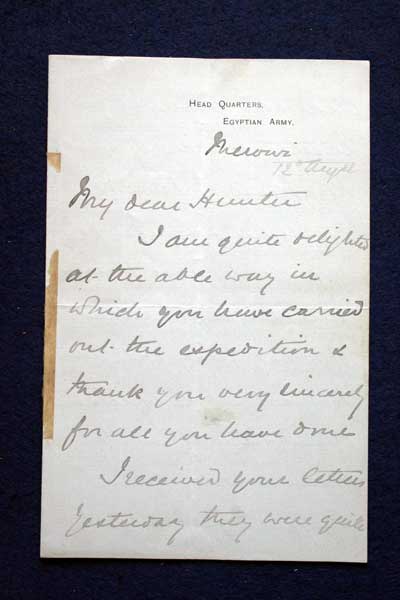 HEAD QUARTERS,
EGYPTIAN ARMY.
Merowi
12th Aug
My dear Hunter
I am quite delighted
at the able way in
which you have carried
out the expedition &
thank you very sincerely
for all you have done
I received your letters
yesterday they were quite